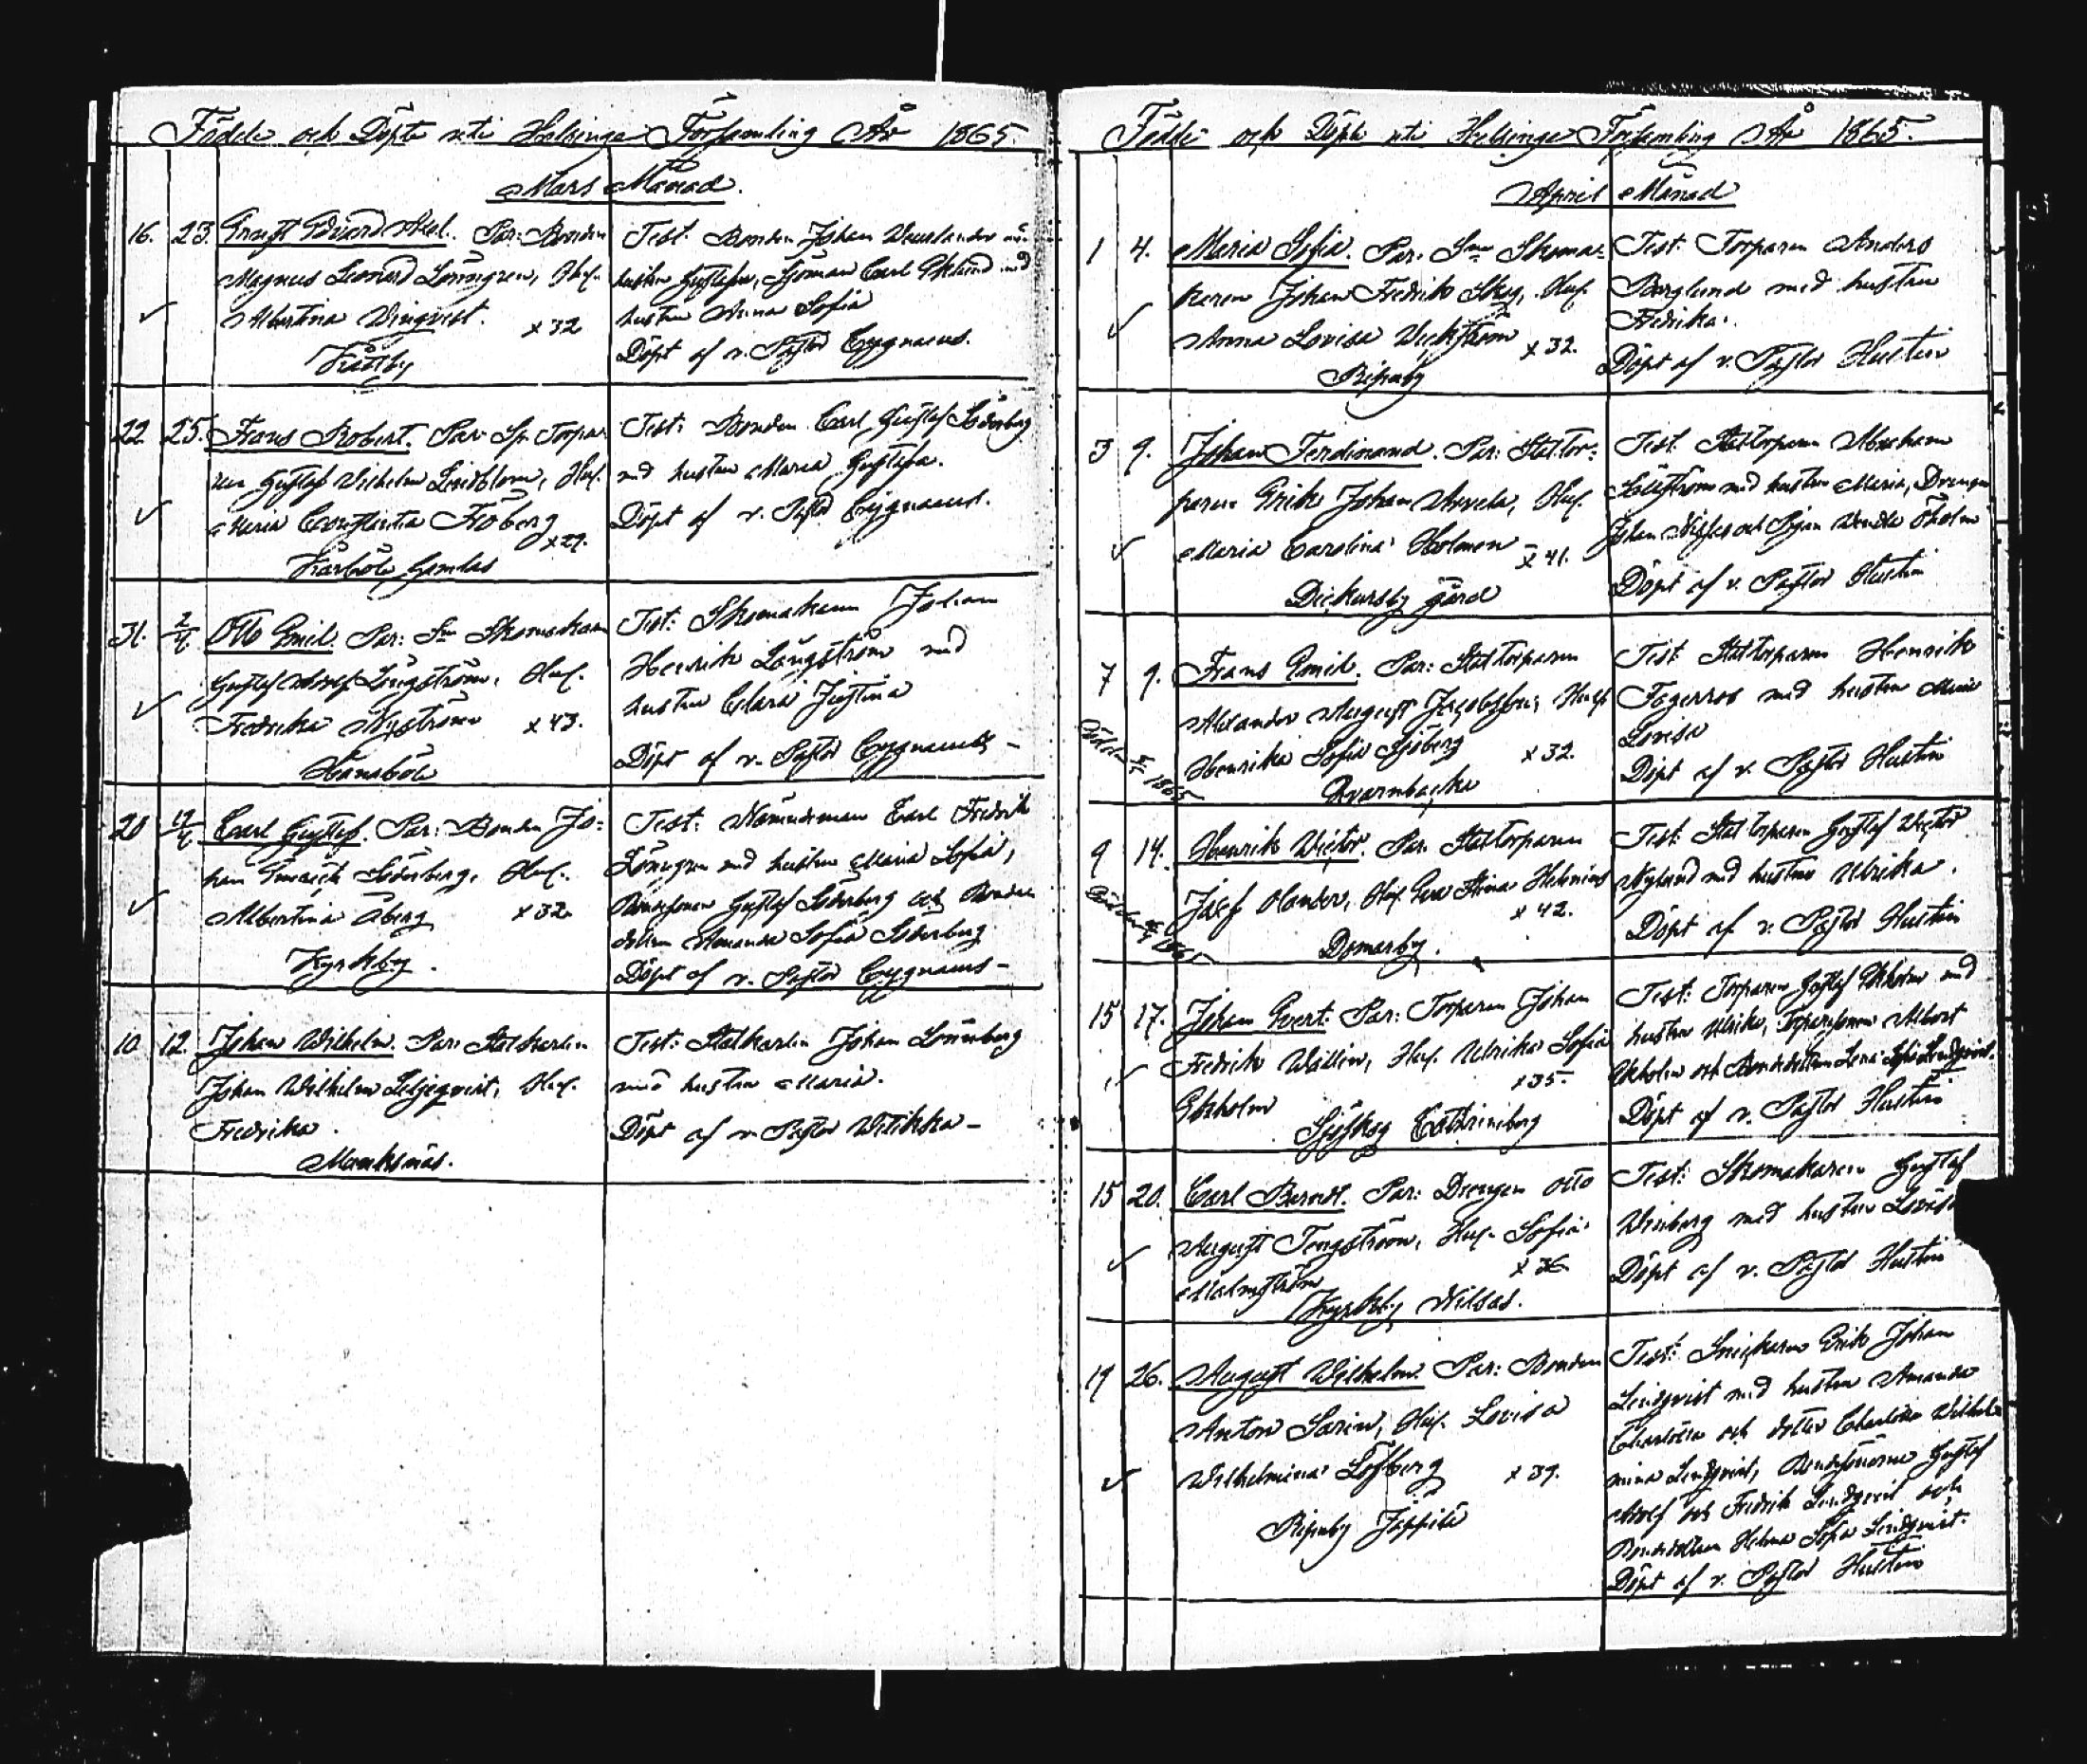 Födde och Döpte uti Helsinge Församling År 1865.
Mars Månad.
16. 23. Ernst Edvard Axel. Par: Bonden
Magnus Leonard Lönngren, Hust.
Albertina Winqvist. x 32
Test: Bonden Johan
hustru Gustafva, Sjöman Carl Eklund med
hustru Anna Sofia
Döpt af v. Pastor Cygnaeus.
22 25. Frans Robert. Par: Sp. Torpa-
ren Gustaf Wilhelm Lindblom, Hust.
Maria Constantia Fröberg
x 29.
Kårböle Gamlas
Test: Bonden Carl Gustaf Söderberg
med hustru Maria Gustafa.
Döpt af v. Pastor Cygnaeus.
31. 2/4. Otto Emil. Par: Sn Skomakaren
Gustaf Adolf Långström, Hust.
Fredrika Nyström x 43.
Hanaböle
Test: Skomakaren Johan
Henrik Långström med
hustru Clara Justina
Döpt af v. Pastor Cygnaeus –
20 17/4 Carl Gustaf. Par: Bonden Jo-
han Söderberg, Hust.
Albertina Åberg x 32.
Kyrkby.
Test: Nämndeman Carl Fredrik
Lönngren med hustru Maria Sofia,
Bondesonen Gustaf Söderberg och Bonde
dottern Amanda Sofia Söderberg
Döpt af v. Pastor Cygnaeus –
10 12. Johan Wilhelm. Par: Statkarlen
Johan Wilhelm Liljeqvist, Hust.
Fredrika.
Munksnäs.
Test: Statkarlen Johan Lönnberg
med hustru Maria.
Döpt af v. Pastor Witikka –
Födde och Döpte uti Helsinge Församling År 1865.
April Månad
1 4. Maria Sofia. Par: Sn Skoma-
karen Johan Fredrik Skog, Hust.
Anna Lovisa Wickström x 32.
Ripuby
Test: Torparen Anders
Berglund med hustru
Fredrika.
Döpt af v. Pastor Hustin
3 9. Johan Ferdinand. Par: Stattor-
paren Erik Johan Arvela, Hust.
Maria Carolina Holmen x 41.
Dickursby gård
Test: Stattorparen Abraham
med hustru Maria, Drengen
Johan och Pigan Wendla Öholm
Döpt af v. Pastor Hustin
7 9. Frans Emil. Par: Stattorparen
Alexander August Jacobsson, Hust.
Henrika Sofia Sjöberg x 32.
Qvarnbacka
Döden 1865
Test: Stattorparen Henrik
Fagerros med hustru Maria
Lovisa
Döpt af v. Pastor Hustin
9 14. Henrik Victor. Par: Stattorparen
Josef Olander, Hust. Eva Stina Helenius
x 42.
Domarby.
Test: Stattorparen Gustaf Victor
Nylund med hustru Ulrika.
Döpt af v. Pastor Hustin
15 17. Johan Evert. Par: Torparen Johan
Fredrik Wallin, Hust. Ulrika Sofia
x 35.
Ekholm
Sjöskog Cathrineberg
Test: Torparen Gustaf Ekholm med
hustru Ulrika, Torparsonen Albert
Ekholm och Bondedottren Lena Sofia Lindqvist.
Döpt af v. Pastor Hustin
15 20. Carl Berndt. Par: Drengen Otto
August Tengström, Hust. Sofia
x 36
Malmström
Kyrkby Nissas.
Test: Skomakaren Gustaf
Winberg med hustru Lovisa
Döpt af v. Pastor Hustin
19 26. August Wilhelm. Par: Bonden
Anton Sarin, Hust. Lovisa
Wilhelmina Löfberg x 39.
Ripuby Jeppila
Test: Snickaren Erik Johan
Lindqvist med hustru Amanda
Charlotta och dotter Charlotta Wilhel-
mina Lindqvist, Bondesönerne Gustaf
Adolf och Fredrik Lindqvist och
Bondedottren Helena Sofia Lindqvist.
Döpt af v. Pastor Hustin